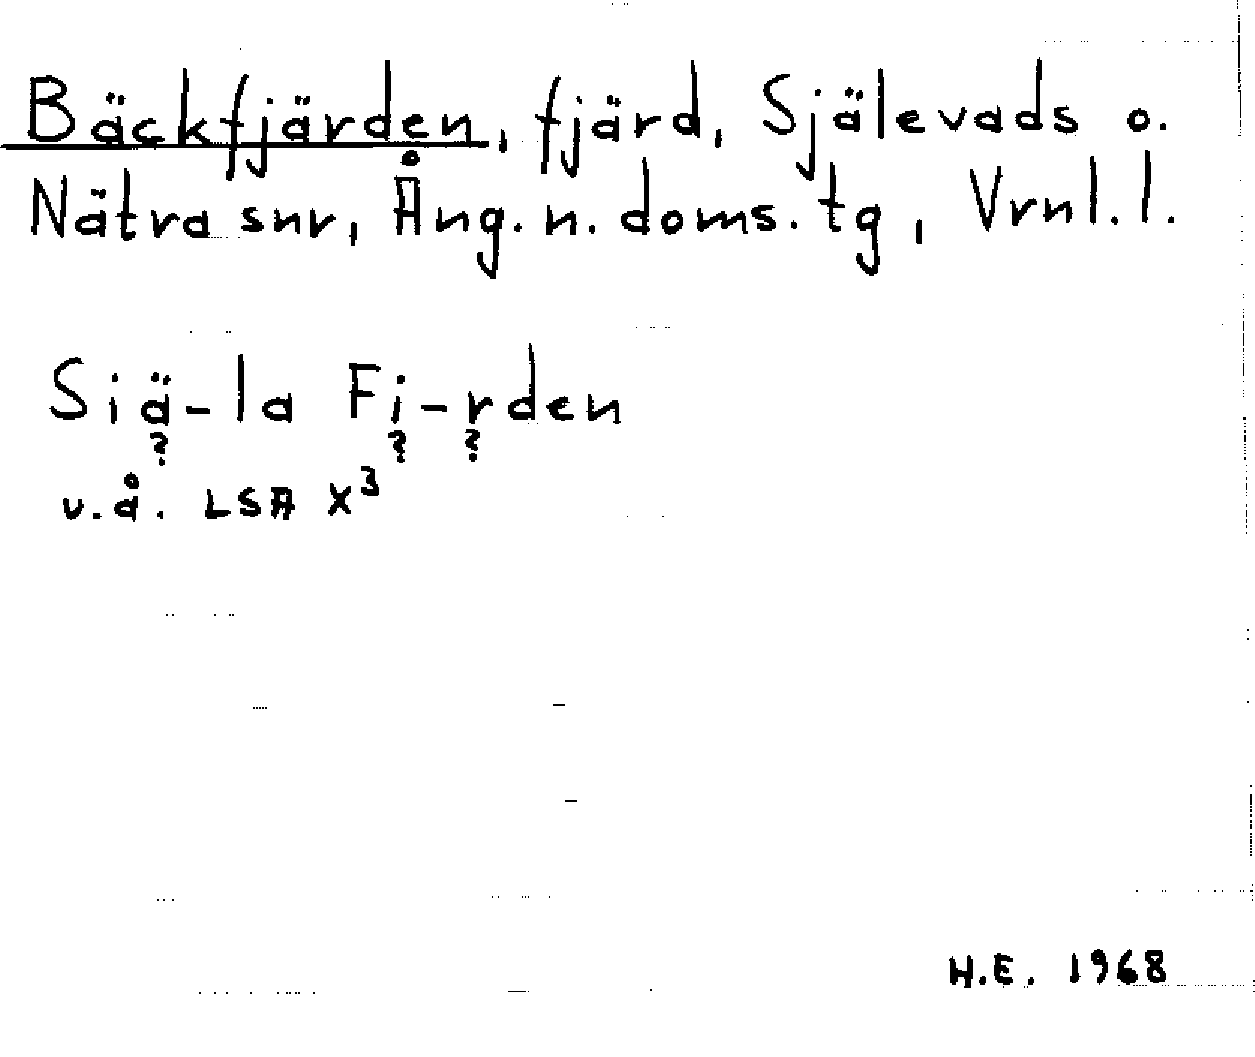 Bäckfjärden, fjärd, Själevads o.
Nätra snr, Ång. n. doms. tg, Vrnl. l.
Siä-la Fi-rden
? ? ?
u.å. LSA X³
H.E. 1968